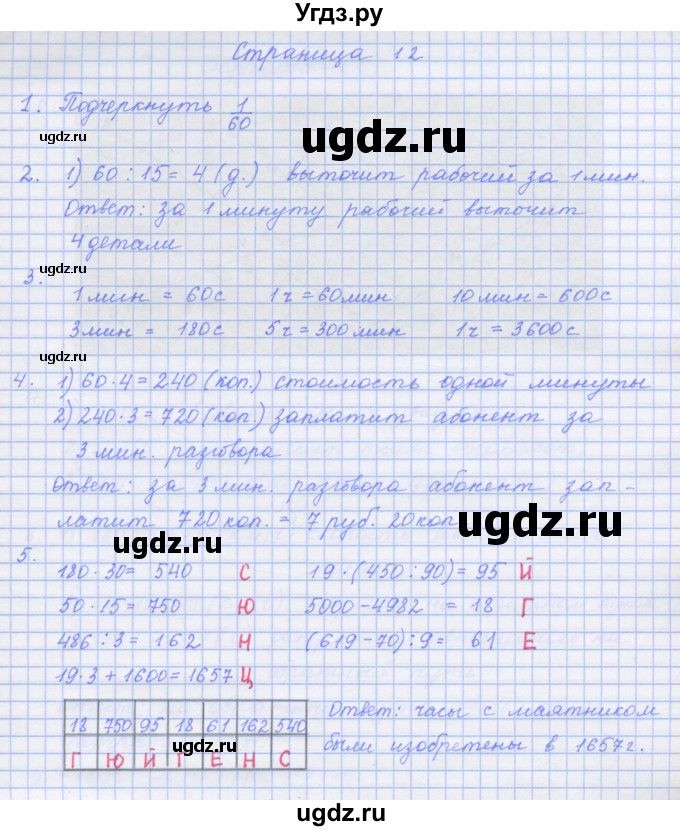 Угдз.ру
Страница 12
1. Подчеркнуть 1/60
ugdz.ru
ugdz.ru
2. 1) 60 : 15 = 4 (д.) выточит рабочий за 1 мин.
Ответ: за 1 минуту рабочий выточит
4 детали
ugdz.ru
3.
1 мин = 60с 1ч = 60мин 10 мин = 600с
3мин = 180с 5ч = 300мин 1ч = 3600с
ugdz.ru
ugdz.ru
4. 1) 60 · 4 = 240 (коп.) стоимость одной минуты
2) 240 · 3 = 720 (коп.) заплатит абонент за
3 мин. разговора
Ответ: за 3 мин. разговора абонент зап-
латит 720 коп. = 7 руб. 20 коп
ugdz.ru
ugdz.ru
5.
180 · 30 = 540 С 19 · (450 : 90) = 95 Й
50 · 15 = 750 Ю 5000 - 4982 = 18 Г
486 : 3 = 162 Н (619 - 70) : 9 = 61 Е
19 · 3 + 1600 = 1657 Ц
18 750 95 18 61 162 540
Г Ю Й Г Е Н С
ugdz.ru
Ответ: часы с маятником
были изобретены в 1657г.
ugdz.ru
ugdz.ru